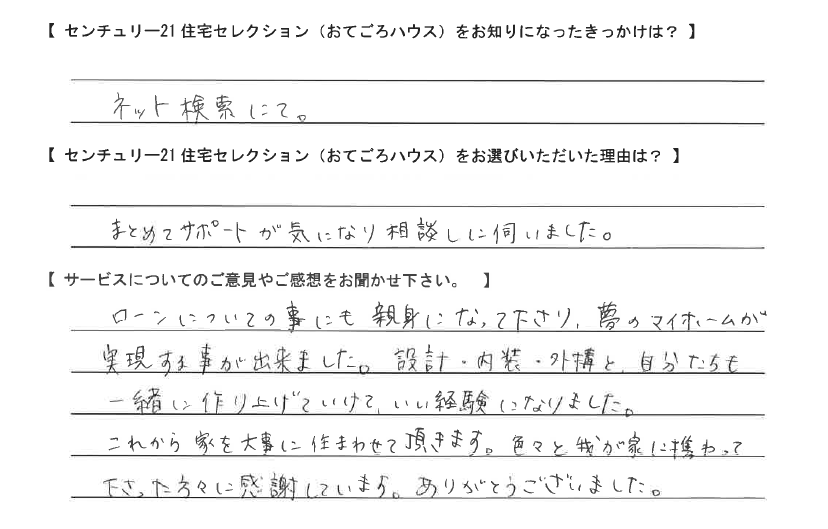 【 センチュリー21 住宅セレクション（おてごろハウス）をお知りになったきっかけは？ 】
ネット検索にて。
【 センチュリー21 住宅セレクション（おてごろハウス）をお選びいただいた理由は？ 】
まとめてサポートが気になり相談しに伺いました。
【 サービスについてのご意見やご感想をお聞かせ下さい。 】
ローンについての事にも親身になって下さり、夢のマイホームが
実現する事が出来ました。設計・内装・外構と、自分たちも
一緒に作り上げていけて、いい経験になりました。
これから家を大事に住まわせて頂きます。色々と我が家に携わって
下さった方々に感謝しています。ありがとうございました。